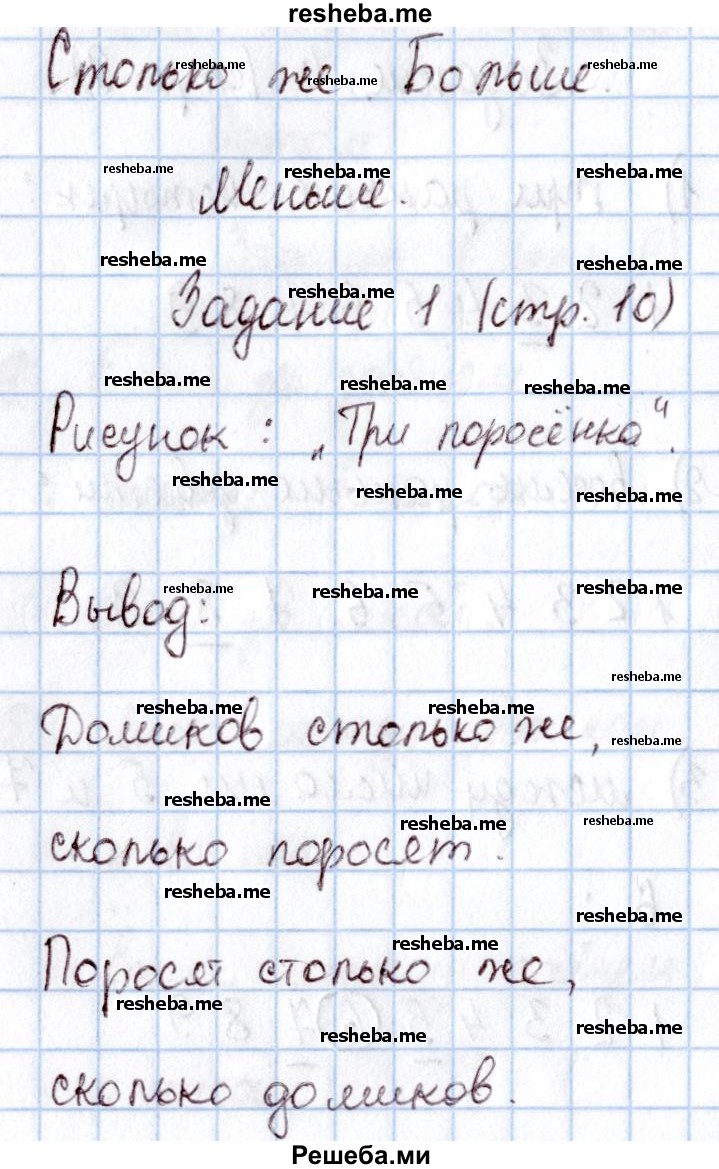 resheba.me
Столько же. Больше.
Меньше.
Задание 1 (стр. 10)
Рисунок : „Три поросёнка".
Вывод:
Домиков столько же,
сколько поросят.
Поросят столько же,
сколько домиков.
Решеба.ми